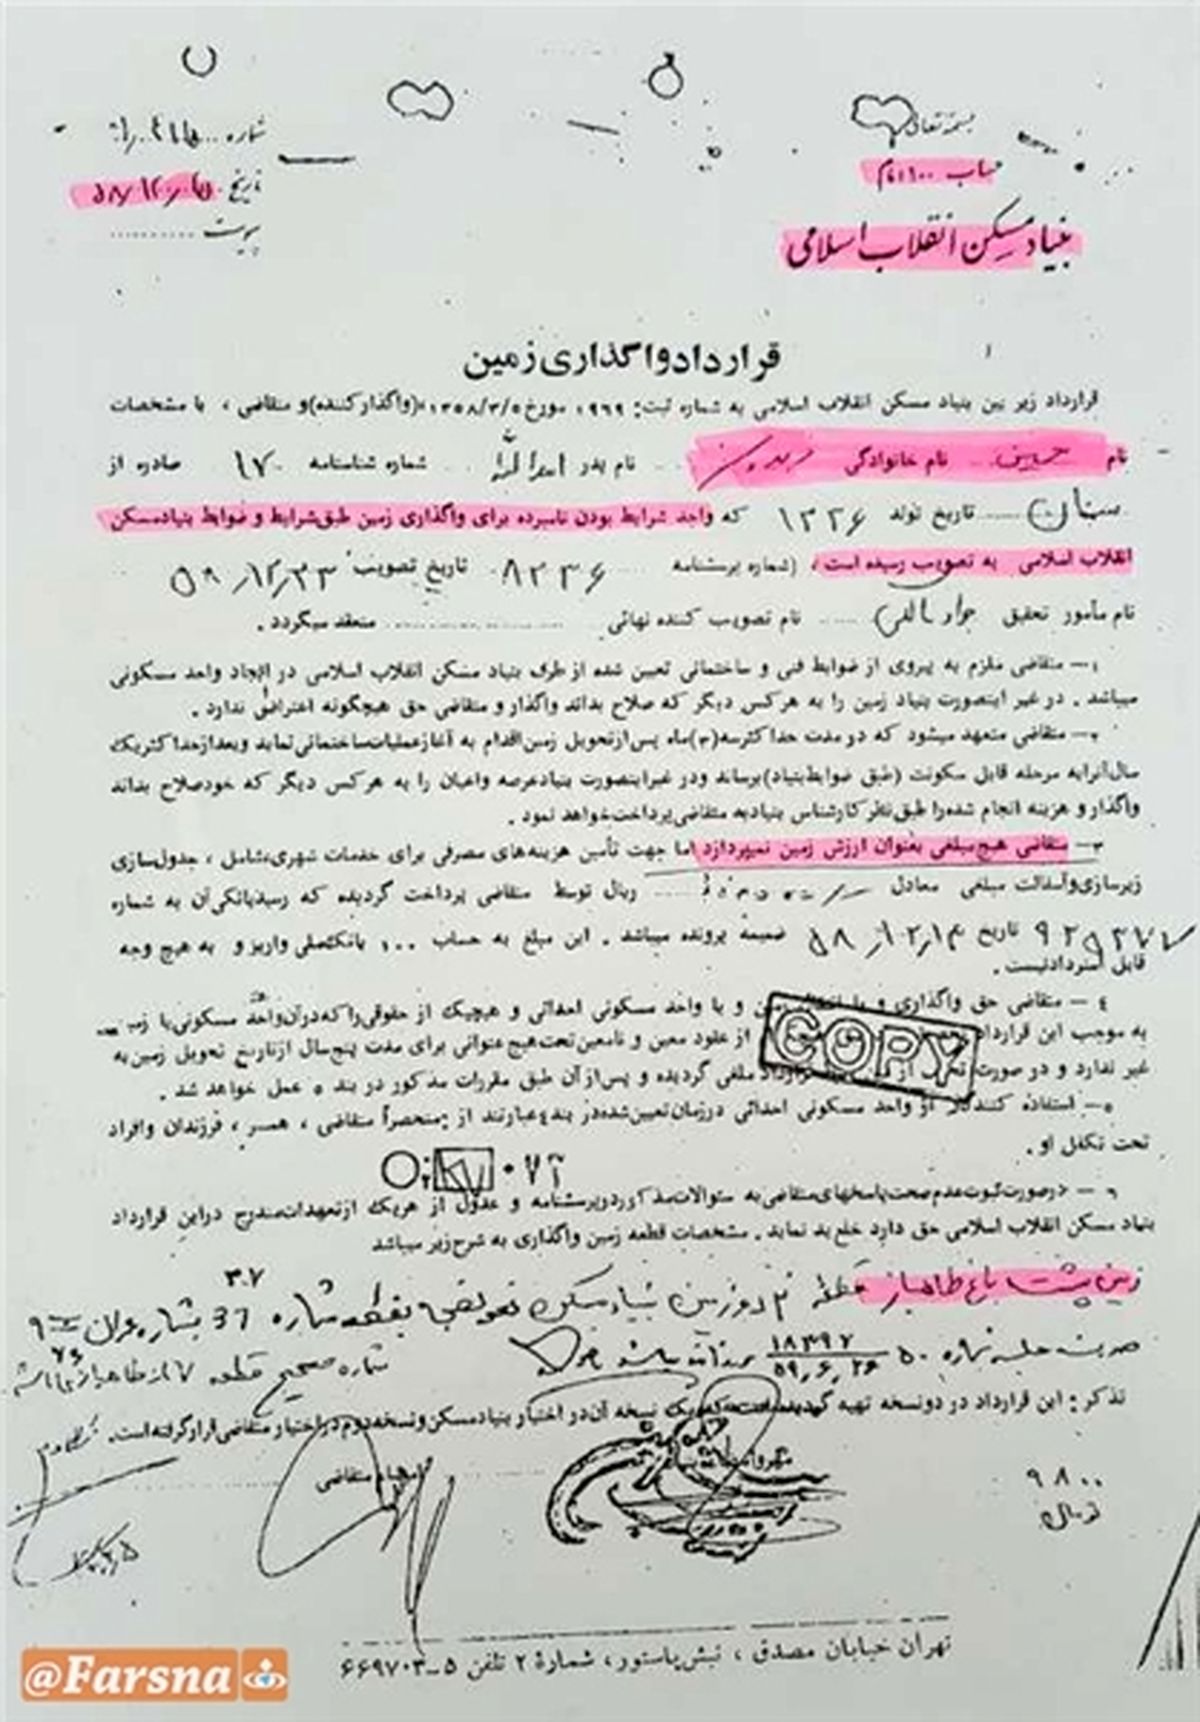 بسمه تعالی
شماره
حساب ۱۰۰ امام
تاریخ
بنیاد مسکن انقلاب اسلامی
پیوست
قرارداد واگذاری زمین
قرارداد زیر بین بنیاد مسکن انقلاب اسلامی به شماره ثبت: ۱۹۶۹ مورخ ۱۳۵۸/۳/۵ (واگذار کننده) و متقاضی ، با مشخصات
نام حسین نام خانوادگی فریدون نام پدر اسدالله شماره شناسنامه ۱۷۰ صادره از
سمنان تاریخ تولد ۱۳۳۶ که واجد شرایط بودن نامبرده برای واگذاری زمین طبق شرایط و ضوابط بنیاد مسکن
انقلاب اسلامی به تصویب رسیده است ، (شماره پرسشنامه ۸۲۳۶ تاریخ تصویب
نام مأمور تحقیق جواد نام تصویب کننده نهائی منعقد میگردد .
۱ـ متقاضی ملزم به پیروی از ضوابط فنی و ساختمانی تعیین شده از طرف بنیاد مسکن انقلاب اسلامی در ایجاد واحد مسکونی
میباشد . در غیر اینصورت بنیاد زمین را به هرکس دیگر که صلاح بداند واگذار و متقاضی حق هیچگونه اعتراضی ندارد .
۲ـ متقاضی متعهد میشود که در مدت حداکثر سه (۳) ماه پس از تحویل زمین اقدام به آغاز عملیات ساختمانی نماید و بعد از حداکثر یک
سال آنرا به مرحله قابل سکونت (طبق ضوابط بنیاد) برساند و در غیر اینصورت بنیاد عرصه و اعیان را به هرکس دیگر که خود صلاح بداند
واگذار و هزینه انجام شده را طبق نظر کارشناس بنیاد به متقاضی پرداخت خواهد نمود .
۳ـ متقاضی هیچ مبلغی بعنوان ارزش زمین نمیپردازد اما جهت تأمین هزینه های مصرفی برای خدمات شهری ، شامل ، جدول سازی
زیرسازی و آسفالت مبلغی معادل ریال توسط متقاضی پرداخت گردیده که رسید بانکی آن به شماره
تاریخ ضمیمه پرونده میباشد . این مبلغ به حساب ۱۰۰ بانک ملی واریز و به هیچ وجه
قابل استرداد نیست .
٤ ـ متقاضی حق واگذاری و یا انتقال زمین و یا واحد مسکونی احداثی و هیچیک از حقوقی را که در آن واحد مسکونی یا زمین
به موجب این قرارداد از عقود معین و نامعین تحت هیچ عنوانی برای مدت پنج سال از تاریخ تحویل زمین به
غیر ندارد و در صورت تخلف از قرارداد ملغی گردیده و پس از آن طبق مقررات مذکور در بند ۵ عمل خواهد شد .
۵ـ استفاده کنندگان از واحد مسکونی احداثی در زمان تعیین شده در بند ٤ عبارتند از : منحصراً متقاضی ، همسر ، فرزندان و افراد
تحت تکفل او .
COPY
۶ ـ در صورت ثبوت عدم صحت پاسخهای متقاضی به سئوالات مذکور در پرسشنامه و عدول از هریک از تعهدات مندرج در این قرارداد
بنیاد مسکن انقلاب اسلامی حق دارد خلع ید نماید . مشخصات قطعه زمین واگذاری به شرح زیر میباشد
زمین پشت باغ طاهباز قطعه
۳۰۷
صورت جلسه شماره ۵۰
شماره صحیح قطعه
تذکر : این قرارداد در دو نسخه تهیه گردیده است که یک نسخه آن در اختیار بنیاد مسکن و نسخه دوم در اختیار متقاضی قرار گرفته است .
امضاء متقاضی
۹۸۰۰
تهران خیابان مصدق ، نبش پاستور ، شمارهٔ ۲ تلفن ۵ـ۶۶۹۷۰۳
@Farsna